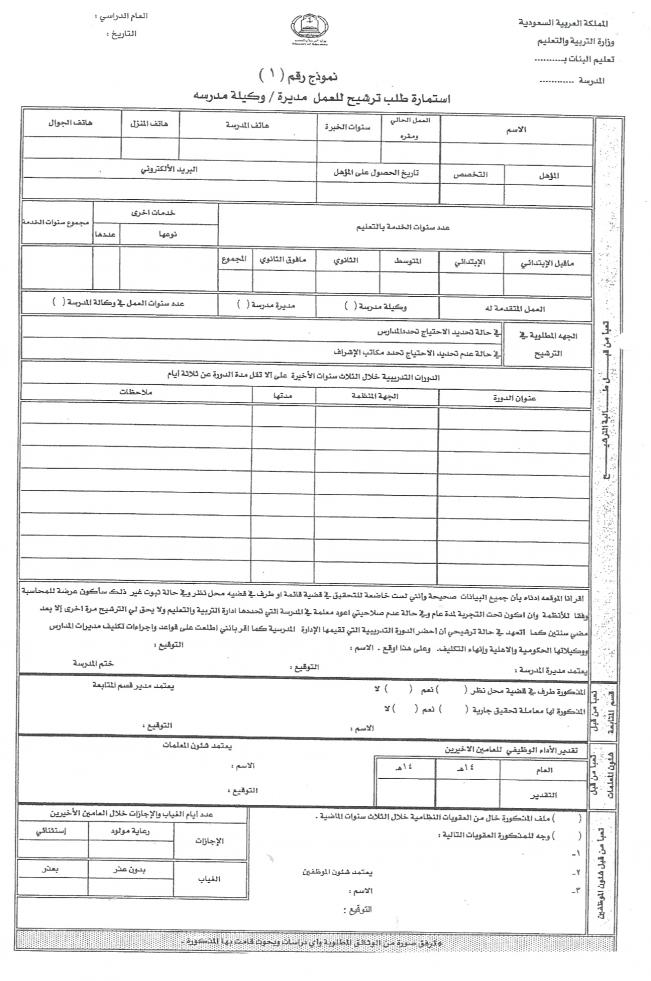 المملكة العربية السعودية
وزارة التربية والتعليم
تعليم البنات بـ..........
المدرسة ............
العام الدراسي :
التاريخ :
نموذج رقم ( ١ )
استمارة طلب ترشيح للعمل مديرة / وكيلة مدرسه
الاسم
العمل الحالي ومقره
سنوات الخبرة
هاتف المدرسة
هاتف المنزل
هاتف الجوال
المؤهل
التخصص
تاريخ الحصول على المؤهل
البريد الألكتروني
عدد سنوات الخدمة بالتعليم
خدمات اخرى
نوعها
عددها
مجموع سنوات الخدمة
ماقبل الإبتدائي
الإبتدائي
المتوسط
الثانوي
مافوق الثانوي
المجموع
العمل المتقدمة له
وكيلة مدرسة ( )
مديرة مدرسة ( )
عدد سنوات العمل في وكالة المدرسة ( )
الجهه المطلوبة في الترشيح
في حالة تحديد الاحتياج تحدد المدارس
في حالة عدم تحديد الاحتياج تحدد مكاتب الإشراف
الدورات التدريبية خلال الثلاث سنوات الأخيرة على ألا تقل مدة الدورة عن ثلاثة أيام
عنوان الدورة
الجهة المنظمة
مدتها
ملاحظات
تعبأ من قبل طالبة الترشيح
اقر انا الموقعه ادناه بأن جميع البيانات صحيحة وإنني لست خاضعة للتحقيق في قضية قائمة او طرف في قضيه محل نظر وفي حالة ثبوت غير ذلك سأكون عرضة للمحاسبة
وفقا للأنظمة وان اكون تحت التجربة لمدة عام وفي حالة عدم صلاحيتي اعود معلمة في المدرسة التي تحددها ادارة التربية والتعليم ولا يحق لي الترشيح مرة اخرى إلا بعد
مضي سنتين كما اتعهد في حالة ترشيحي أن احضر الدورة التدريبية التي تقيمها الإدارة المدرسية كما اقر بانني اطلعت على قواعد واجراءات تكليف مديرات المدارس
ووكيلاتها الحكومية والاهلية وإنهاء التكليف. وعلى هذا اوقع . الاسم : التوقيع :
يعتمد مديرة المدرسة : التوقيع : ختم المدرسة
تعبأ من قبل قسم المتابعة
المذكورة طرف في قضية محل نظر ( ) نعم ( ) لا
يعتمد مدير قسم المتابعة
المذكورة لها معاملة تحقيق جارية ( ) نعم ( ) لا
الاسم : التوقيع :
تعبأ من قبل شئون المعلمات
تقدير الأداء الوظيفي للعامين الاخيرين
يعتمد شئون المعلمات
العام
١٤هـ
١٤هـ
التقدير
الاسم :
التوقيع :
تعبأ من قبل شئون الموظفين
( ) ملف المذكورة خال من العقوبات النظامية خلال الثلاث سنوات الماضية .
( ) وجه للمذكورة العقوبات التالية :
١-
٢-
٣-
يعتمد شئون الموظفين
الاسم :
التوقيع :
عدد ايام الغياب والإجازات خلال العامين الأخيرين
الإجازات
رعاية مولود
إستثنائي
الغياب
بدون عذر
بعذر
*ترفق صورة من الوثائق المطلوبة وأي دراسات وبحوث قامت بها المذكورة .